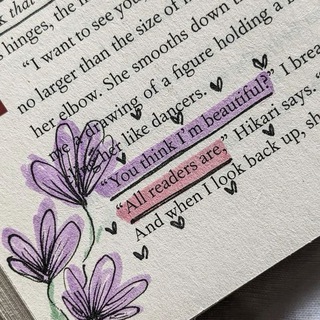 that
s hinges, the
"I want to see you
no larger than the size of
her elbow. She smooths down t
me a drawing of a figure holding a
her like dancers.
"You think I'm beautiful?" I brea
"All readers are," Hikari says. "
And when I look back up, sh